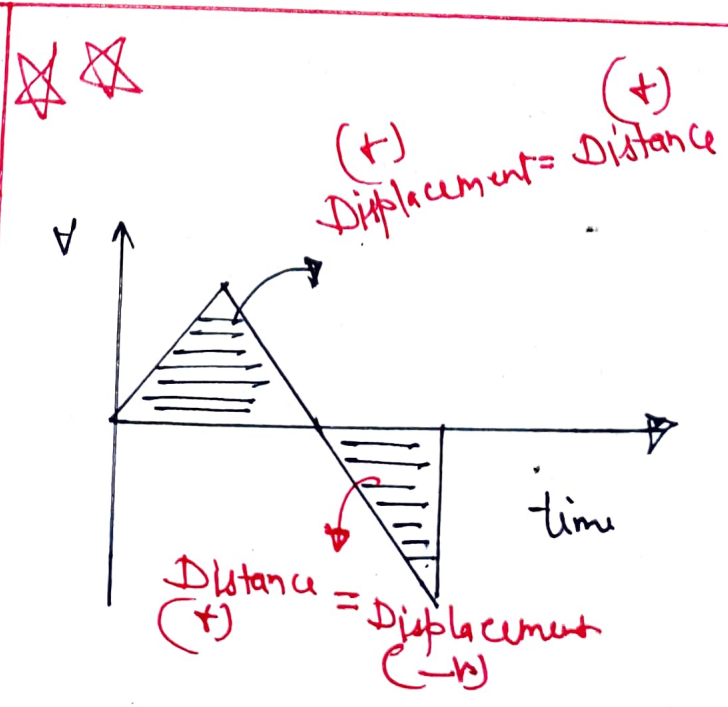 (+) (+)
Displacement = Distance
V
time
Distance = Displacement
(+) (-ve)